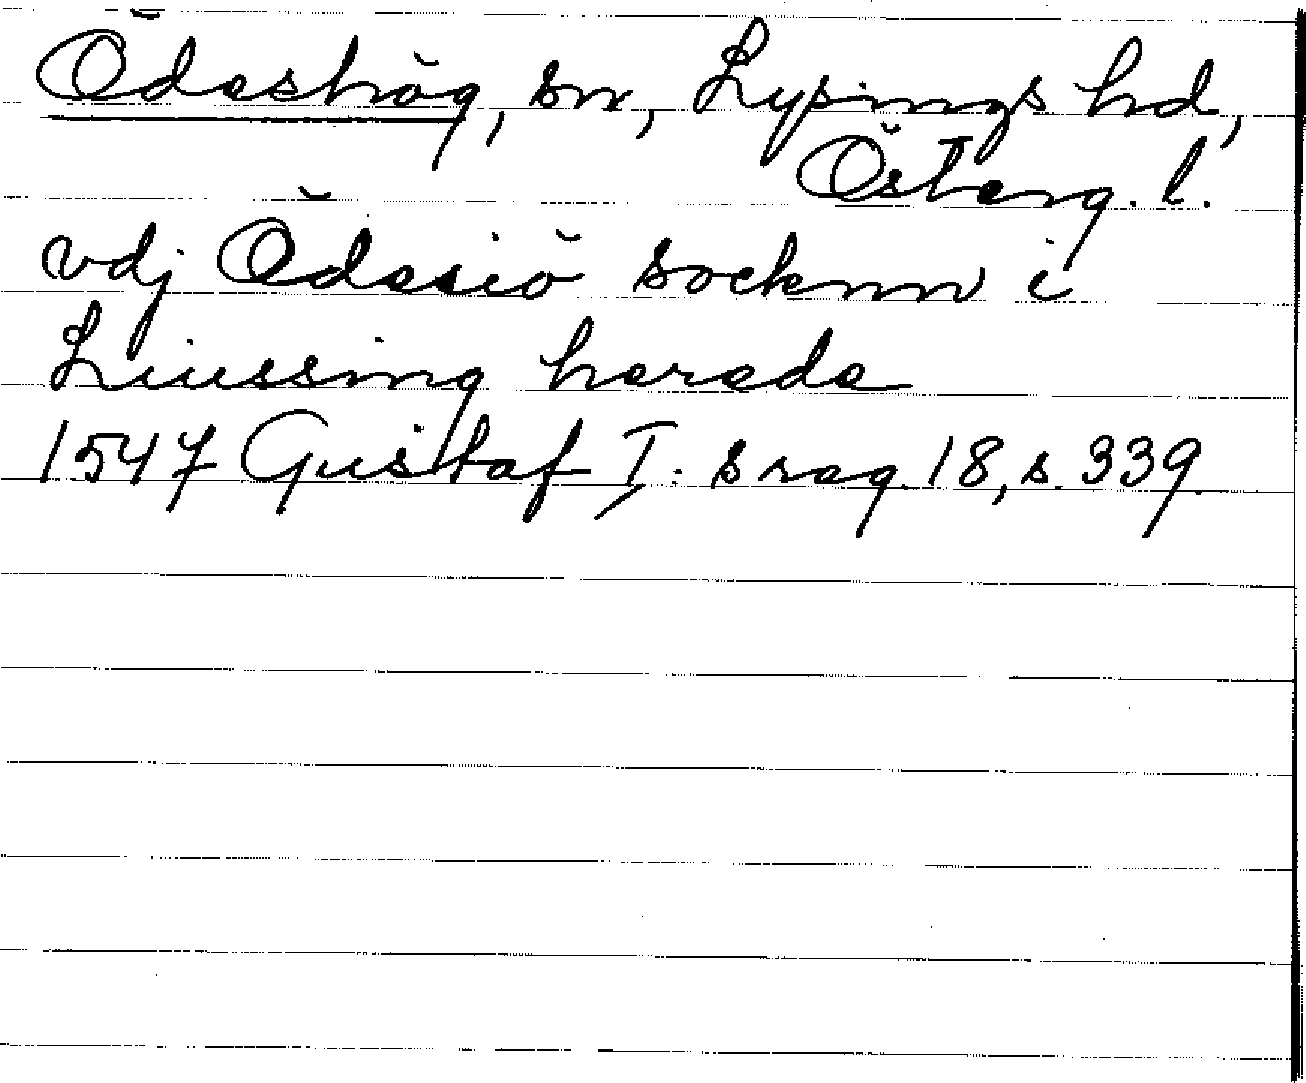 Ödeshög, sn, Lysings hd,
Österg. l.
vdj Ödesiö socknn i
Liussing herede
1547 Gustaf I: s reg. 18, s. 339